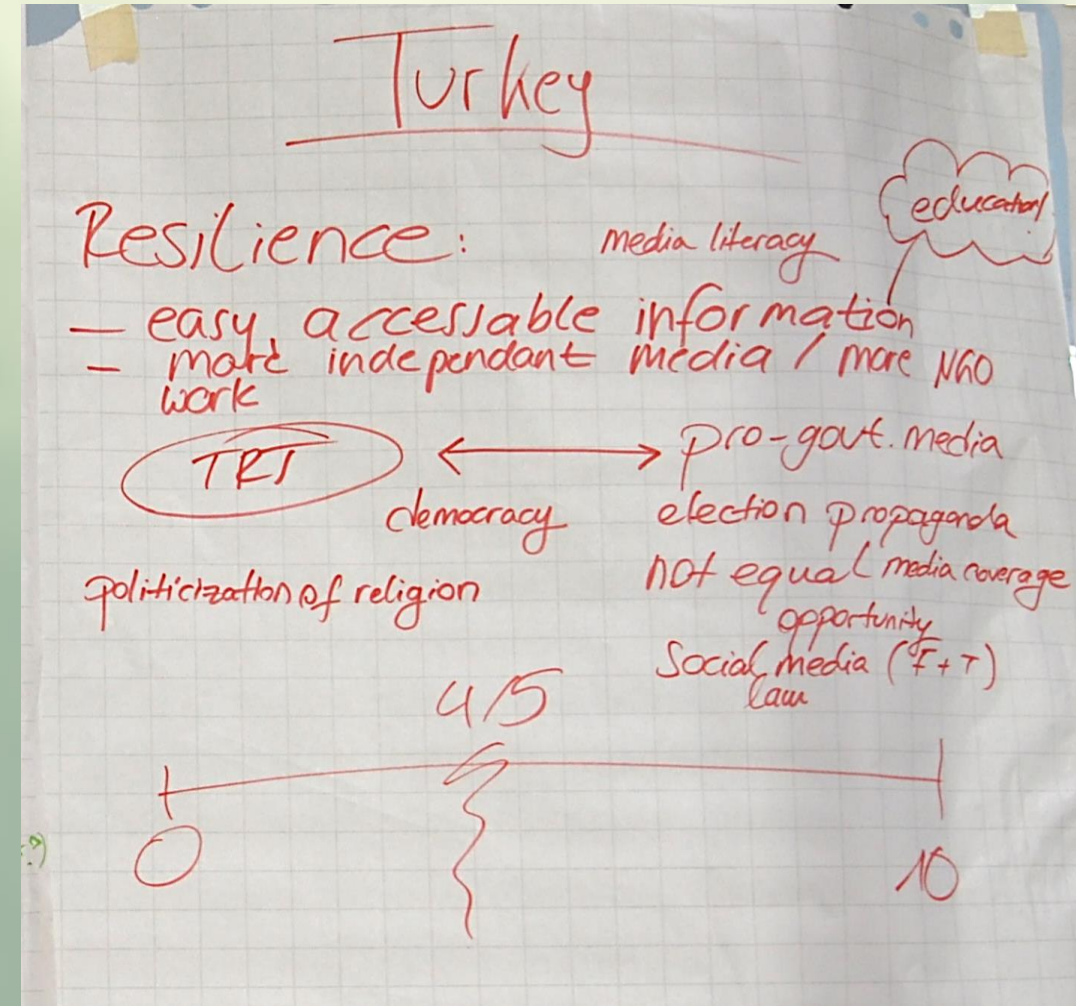 Turkey
education!
Resilience: media literacy
— easy accessable information
— more independant media / more NGO
work
TRT ↔ pro-govt. media
democracy election propaganda
politicization of religion not equal media coverage
opportunity
Social media (F+T)
law
4/5
0 10
:)